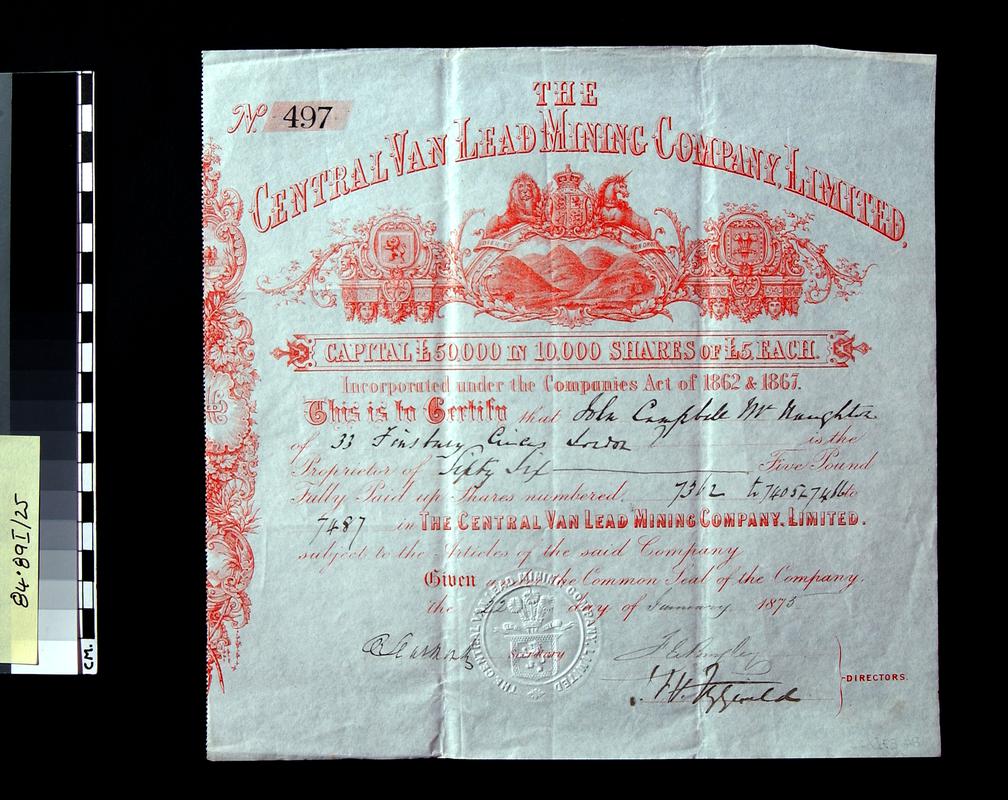 Nº 497
THE
CENTRAL VAN LEAD MINING COMPANY, LIMITED,
DIEU ET MON DROIT
CAPITAL £50,000 IN 10,000 SHARES OF £5, EACH.
Incorporated under the Companies Act of 1862 & 1867.
This is to Certify that John Campbell Mc Naughton
of 33 Finsbury Circus London is the
Proprietor of Sixty Six Five Pound
Fully Paid up Shares numbered, 7362 to 7405 & 7466 to
7487 in THE CENTRAL VAN LEAD MINING COMPANY, LIMITED.
subject to the Articles of the said Company
Given the Common Seal of the Company.
the 22 day of January 1875
Secretary
DIRECTORS.
THE CENTRAL VAN LEAD MINING COMPANY, LIMITED
84.89I/25
CM.